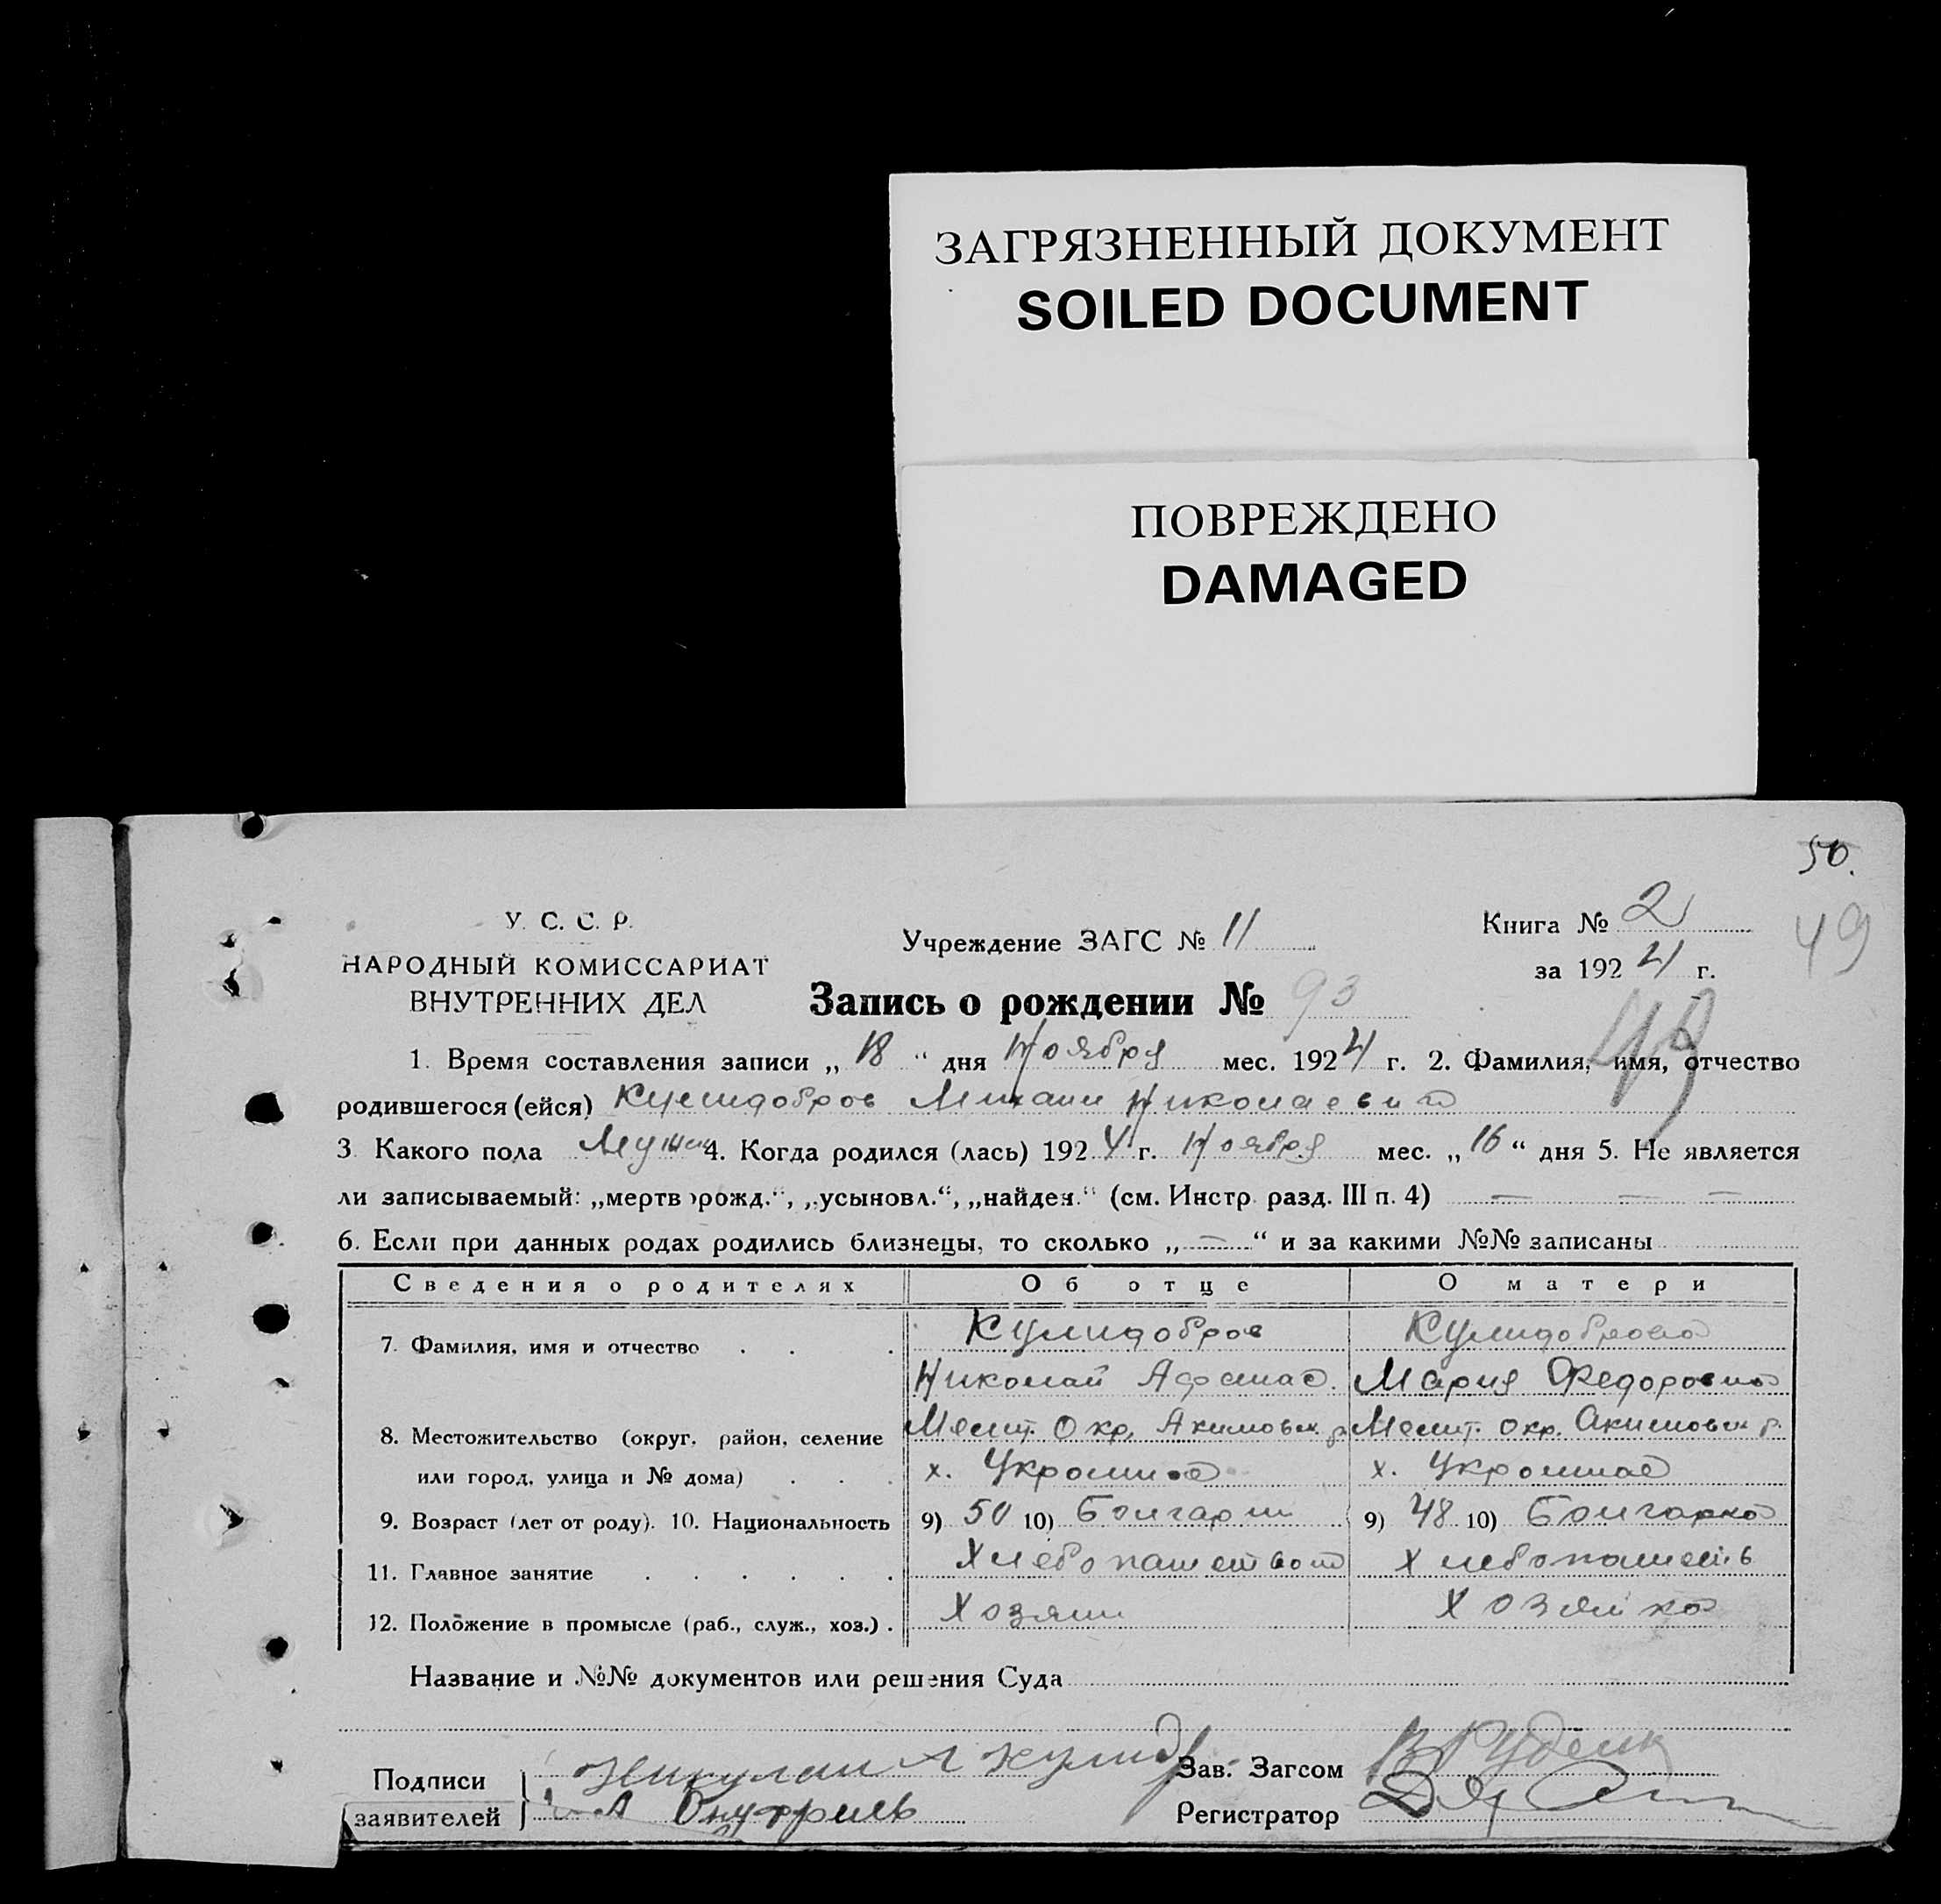 ЗАГРЯЗНЕННЫЙ ДОКУМЕНТ
SOILED DOCUMENT
ПОВРЕЖДЕНО
DAMAGED
50.
49
У. С. С. Р.
НАРОДНЫЙ КОМИССАРИАТ
ВНУТРЕННИХ ДЕЛ
Учреждение ЗАГС № 11
Книга № 2
за 1924 г.
Запись о рождении № 93
1. Время составления записи „ 18 “ дня Ноября мес. 1924 г. 2. Фамилия, имя, отчество
родившегося (ейся) Кулидобров Михаил Николаевич
3. Какого пола Мужск 4. Когда родился (лась) 1924 г. Ноября мес. „ 16 “ дня 5. Не является
ли записываемый: „мертворожд.“, „усыновл.“, „найден.“ (см. Инстр. разд. III п. 4) — — —
6. Если при данных родах родились близнецы, то сколько „ — “ и за какими №№ записаны
Сведения о родителях Об отце О матери
7. Фамилия, имя и отчество Кулидобров Кулидоброва
Николай Афанас. Мария Федоровна
8. Местожительство (округ, район, селение Мелит. Окр. Акимовск. р. Мелит. окр. Акимовск р.
или город, улица и № дома) х. Укромное х. Укромное
9. Возраст (лет от роду). 10. Национальность 9) 50 10) Болгарин 9) 48 10) Болгарка
11. Главное занятие Хлебопашество Хлебопашеств
12. Положение в промысле (раб., служ., хоз.) Хозяин Хозяйка
Название и №№ документов или решения Суда
Подписи
заявителей
Зав. Загсом
Регистратор